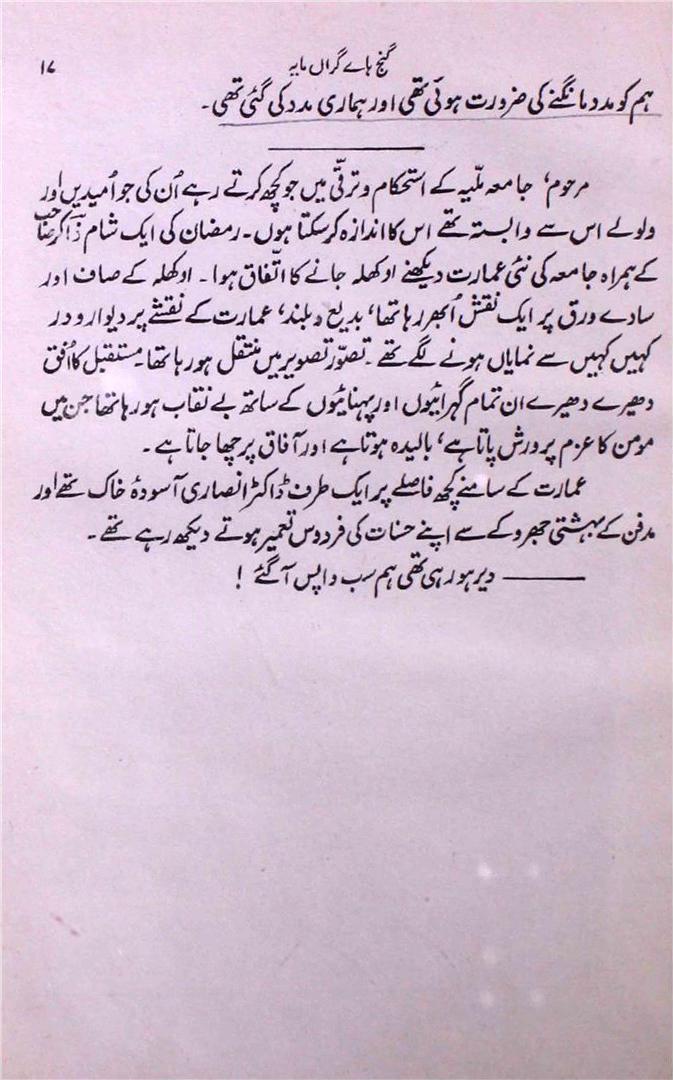 گنج ہاے گراں مایہ
۱۷
ہم کو مدد مانگنے کی ضرورت ہوئی تھی اور ہماری مدد کی گئی تھی۔
مرحوم، جامعہ ملّیہ کے استحکام و ترقّی میں جو کچھ کرتے رہے اُن کی جو اُمیدیں اور
ولولے اس سے وابستہ تھے اس کا اندازہ کر سکتا ہوں۔ رمضان کی ایک شام ذاکر صاحب
کے ہمراہ جامعہ کی نئی عمارت دیکھنے اوکھلہ جانے کا اتّفاق ہوا۔ اوکھلہ کے صاف اور
سادے ورق پر ایک نقش اُبھر رہا تھا، بدیع و بلند، عمارت کے نقشے پر دیوار و در
کہیں کہیں سے نمایاں ہونے لگے تھے۔ تصوّر تصویر میں منتقل ہو رہا تھا۔ مستقبل کا اُفق
دھیرے دھیرے ان تمام گہرائیوں اور پہنائیوں کے ساتھ بے نقاب ہو رہا تھا جن میں
مومن کا عزم پرورش پاتا ہے، بالیدہ ہوتا ہے اور آفاق پر چھا جاتا ہے۔
عمارت کے سامنے کچھ فاصلے پر ایک طرف ڈاکٹر انصاری آسودۂ خاک تھے اور
مدفن کے بہشتی جھروکے سے اپنے حسنات کی فردوس تعمیر ہوتے دیکھ رہے تھے۔
——— دیر ہو رہی تھی ہم سب واپس آ گئے !